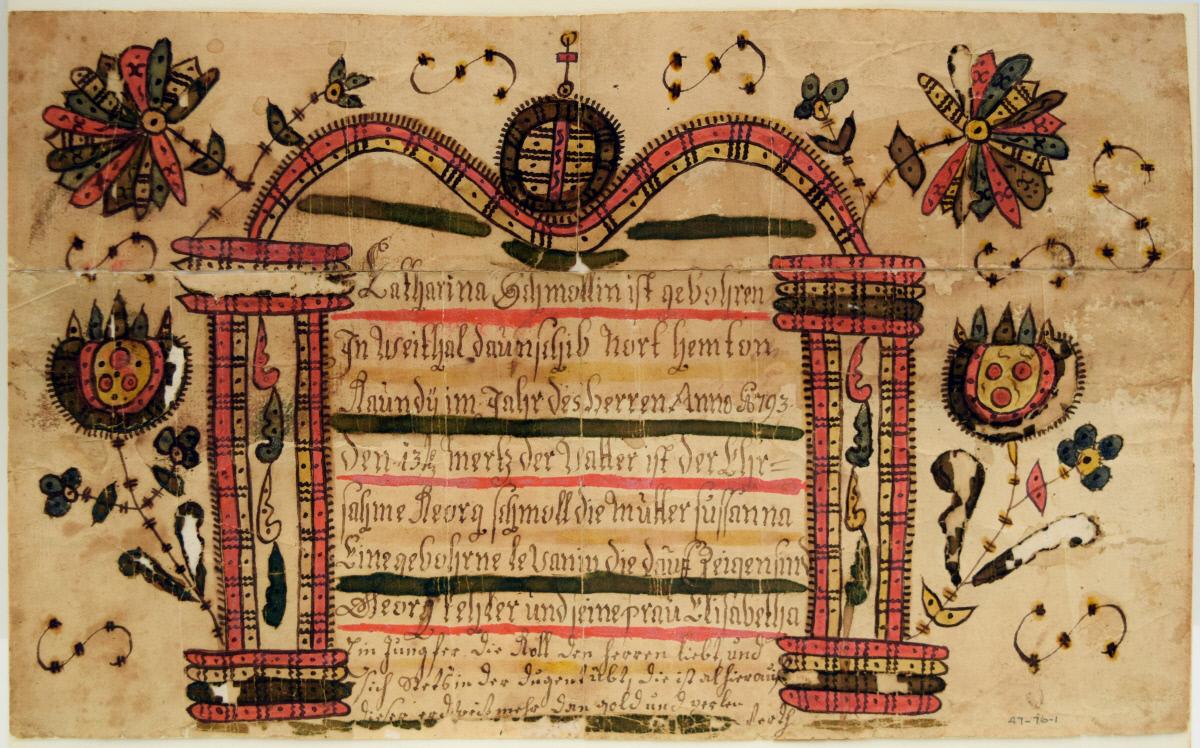 Catharina Schmollin ist gebohren
In Weithal daunschib Nort hemton
Kaundÿ im Jahr des herren Anno 1793
den 13te mertz der Vatter ist der Ehr=
sahme Georg schmoll die mutter sussanna
Eine gebohrne levanin die dauf Zeigen sind
Georg lehker und seine prau Elisabetha
Ein Jungfer die Koll den herren liebt und
sich stets in der dugent übt die ist alhier auf
dieser erd weit mehr dan gold und perlen
werth
47-76-1